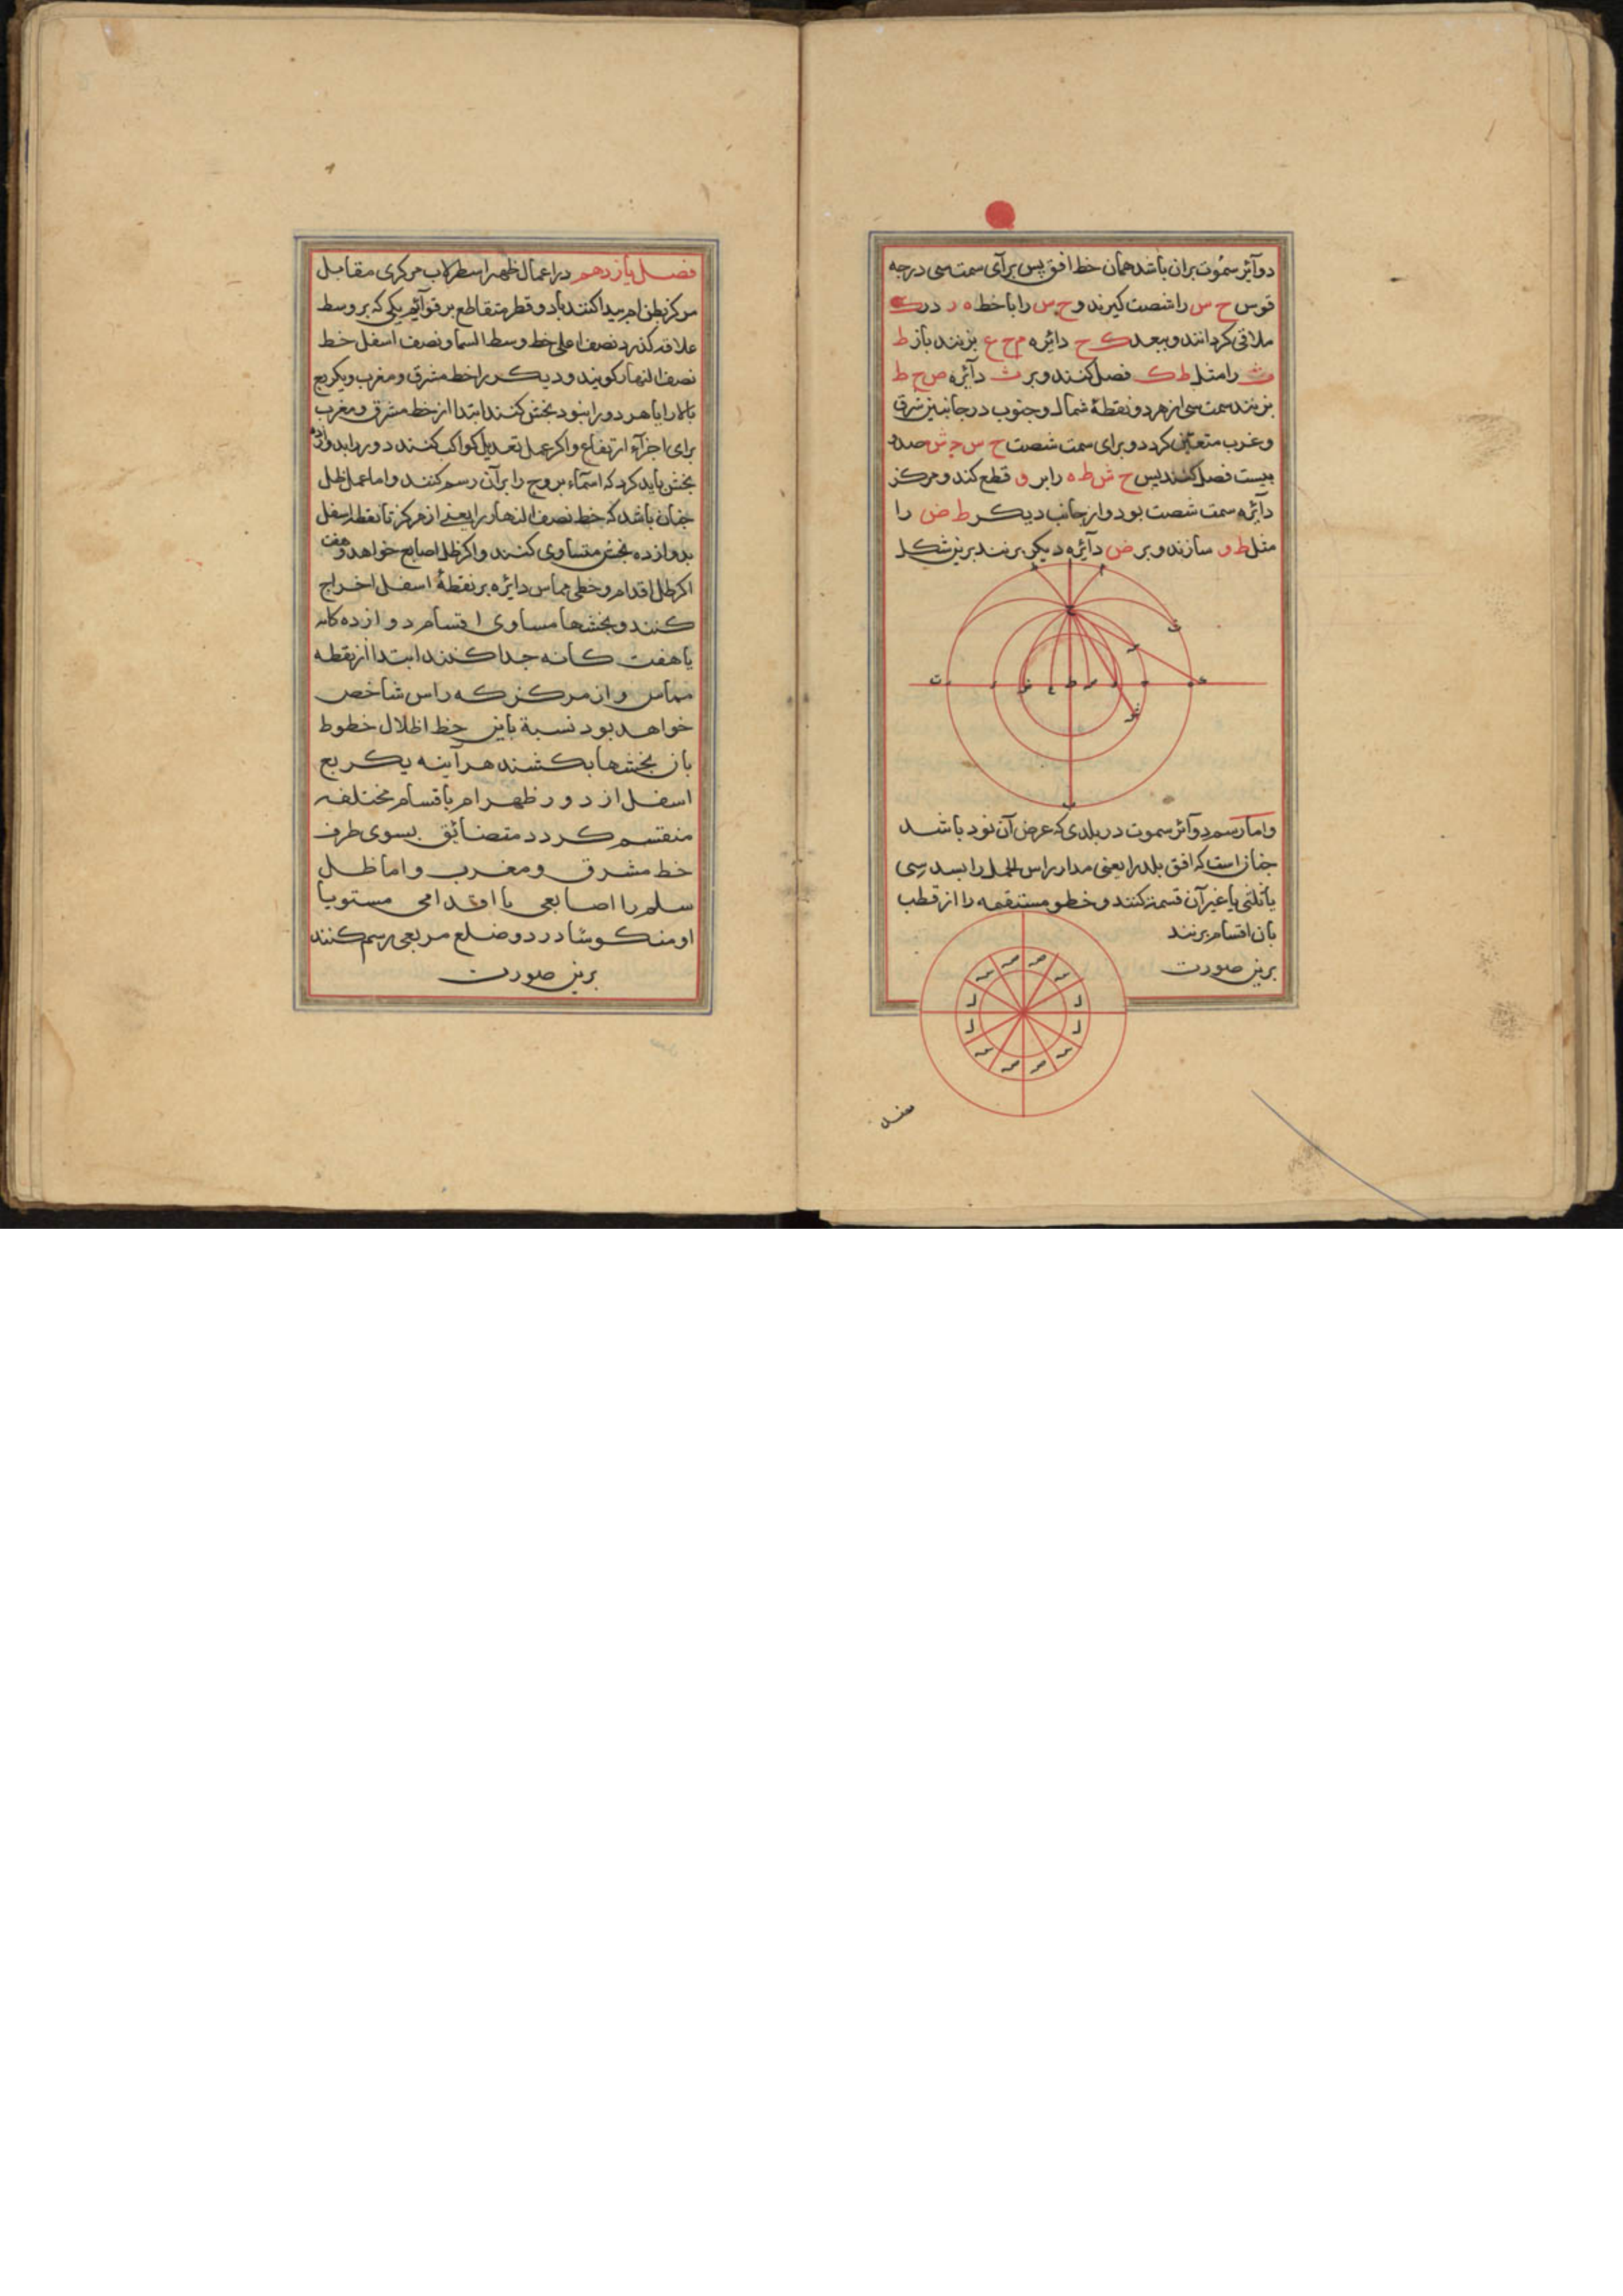 دوآئر سموت بران باشد همان خط افق پس برآی سمت سی درجه
قوس ح س را شصت گیرند و ح س را با خط ه ر در ک
ملاقی کردانند و ببعد ک ح دائره م ح ع بزنند باز ط
ث را مثل ط ک فصل کنند و بر ث دآئره ص ح ط
بزنند سمت سی از هر دو نقطهٔ شمال و جنوب در جانبین شرق
و غرب متعین کردد و برای سمت شصت ح س ج ش صد و
بیست فصل کنند پس ح ش ط ه را بر و قطع کند و مرکز
دآئره سمت شصت بود و از جانب دیکر ط ض را
مثل ط و سازند و بر ض دآئره دیکر بزنند برین شکل
واما رسم دوآئر سموت در بلدی که عرض آن نود باشد
چنان است که افق بلد را یعنی مدار راس الحمل را بسدسی
یا ثلثی یا غیر آن قسمت کنند و خطو مستقیمه را از قطب
بان اقسام برنند
برین صورت
فصل یازدهم در اعمال ظهر اسطرلاب مرکزی مقابل
مرکز بطن ام پیدا کنند با دو قطر متقاطع بر قوآئم یکی که بر وسط
علاقه کذرد نصف اعلی خط وسط السما و نصف اسفل خط
نصف النهار کویند و دیکر را خط مشرق و مغرب و یکربع
بالا را یا هر دو را بنود بخش کنند ابتدا از خط مشرق و مغرب
برای اجزآء ارتفاع و اکر عمل تعدیل کواکب کنند دور را بدوازده
بخش باید کرد که اسمآء بروج را بر آن رسم کنند و اما عمل ظل
چنان باشد که خط نصف النهار را یعنی از مرکز تا نقطه اسفل
بدوازده بخش متساوی کنند و اکر ظل اصابع خواهد و هفت
اکر ظل اقدام و خطی مماس دایره بر نقطهٔ اسفل اخراج
کنند و بخشها مساوی اقسام دوازده کانه
یا هفت کانه جدا کنند ابتدا از نقطه
مماس و از مرکز که راس شاخص
خواهد بود نسبة باین خط اظلال خطوط
بان بخشها بکشند هر آینه یکربع
اسفل از دور ظهر ام باقسام مختلفه
منقسم کردد متضائق بسوی طرف
خط مشرق و مغرب و اما ظل
سلم را اصابعی یا اقدامی مستویا
او منکوسا در دو ضلع مربعی رسم کنند
برین صورت